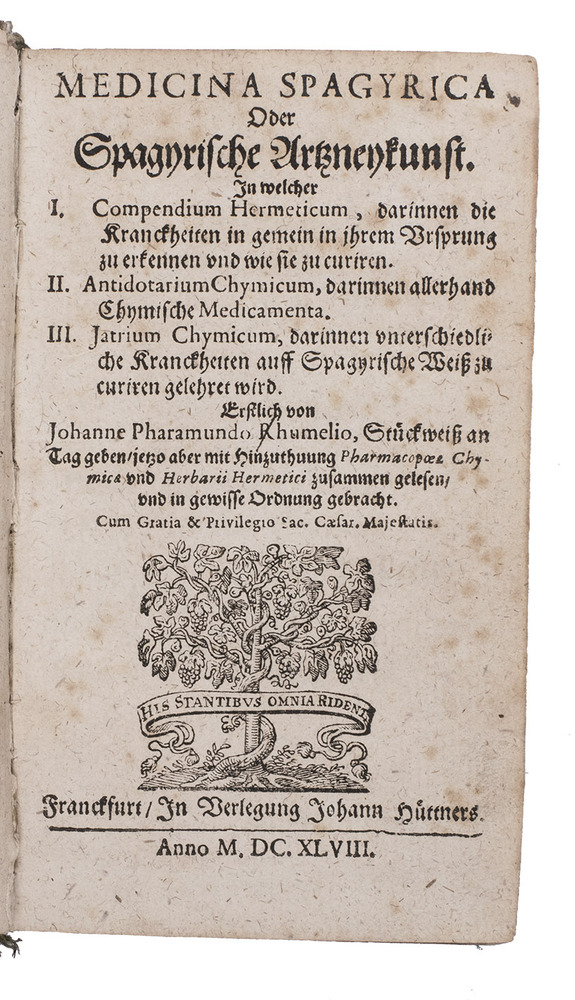 MEDICINA SPAGYRICA
Oder
Spagyrische Artzneykunst.
In welcher
I. Compendium Hermeticum, darinnen die
Kranckheiten in gemein in jhrem Vrsprung
zu erkennen vnd wie sie zu curiren.
II. Antidotarium Chymicum, darinnen allerhand
Chymische Medicamenta.
III. Jatrium Chymicum, darinnen vnterschiedli-
che Kranckheiten auff Spagyrische Weiß zu
curiren gelehret wird.
Erstlich von
Johanne Pharamundo Rhumelio, Stückweiß an
Tag geben/jetzo aber mit Hinzuthuung Pharmacopœæ Chy-
micæ vnd Herbarii Hermetici zusammen gelesen/
vnd in gewisse Ordnung gebracht.
Cum Gratia & Privilegio Sac. Cæsar. Majestatis.
HIS STANTIBVS OMNIA RIDENT
Franckfurt/ In Verlegung Johann Hüttners.
Anno M. DC. XLVIII.